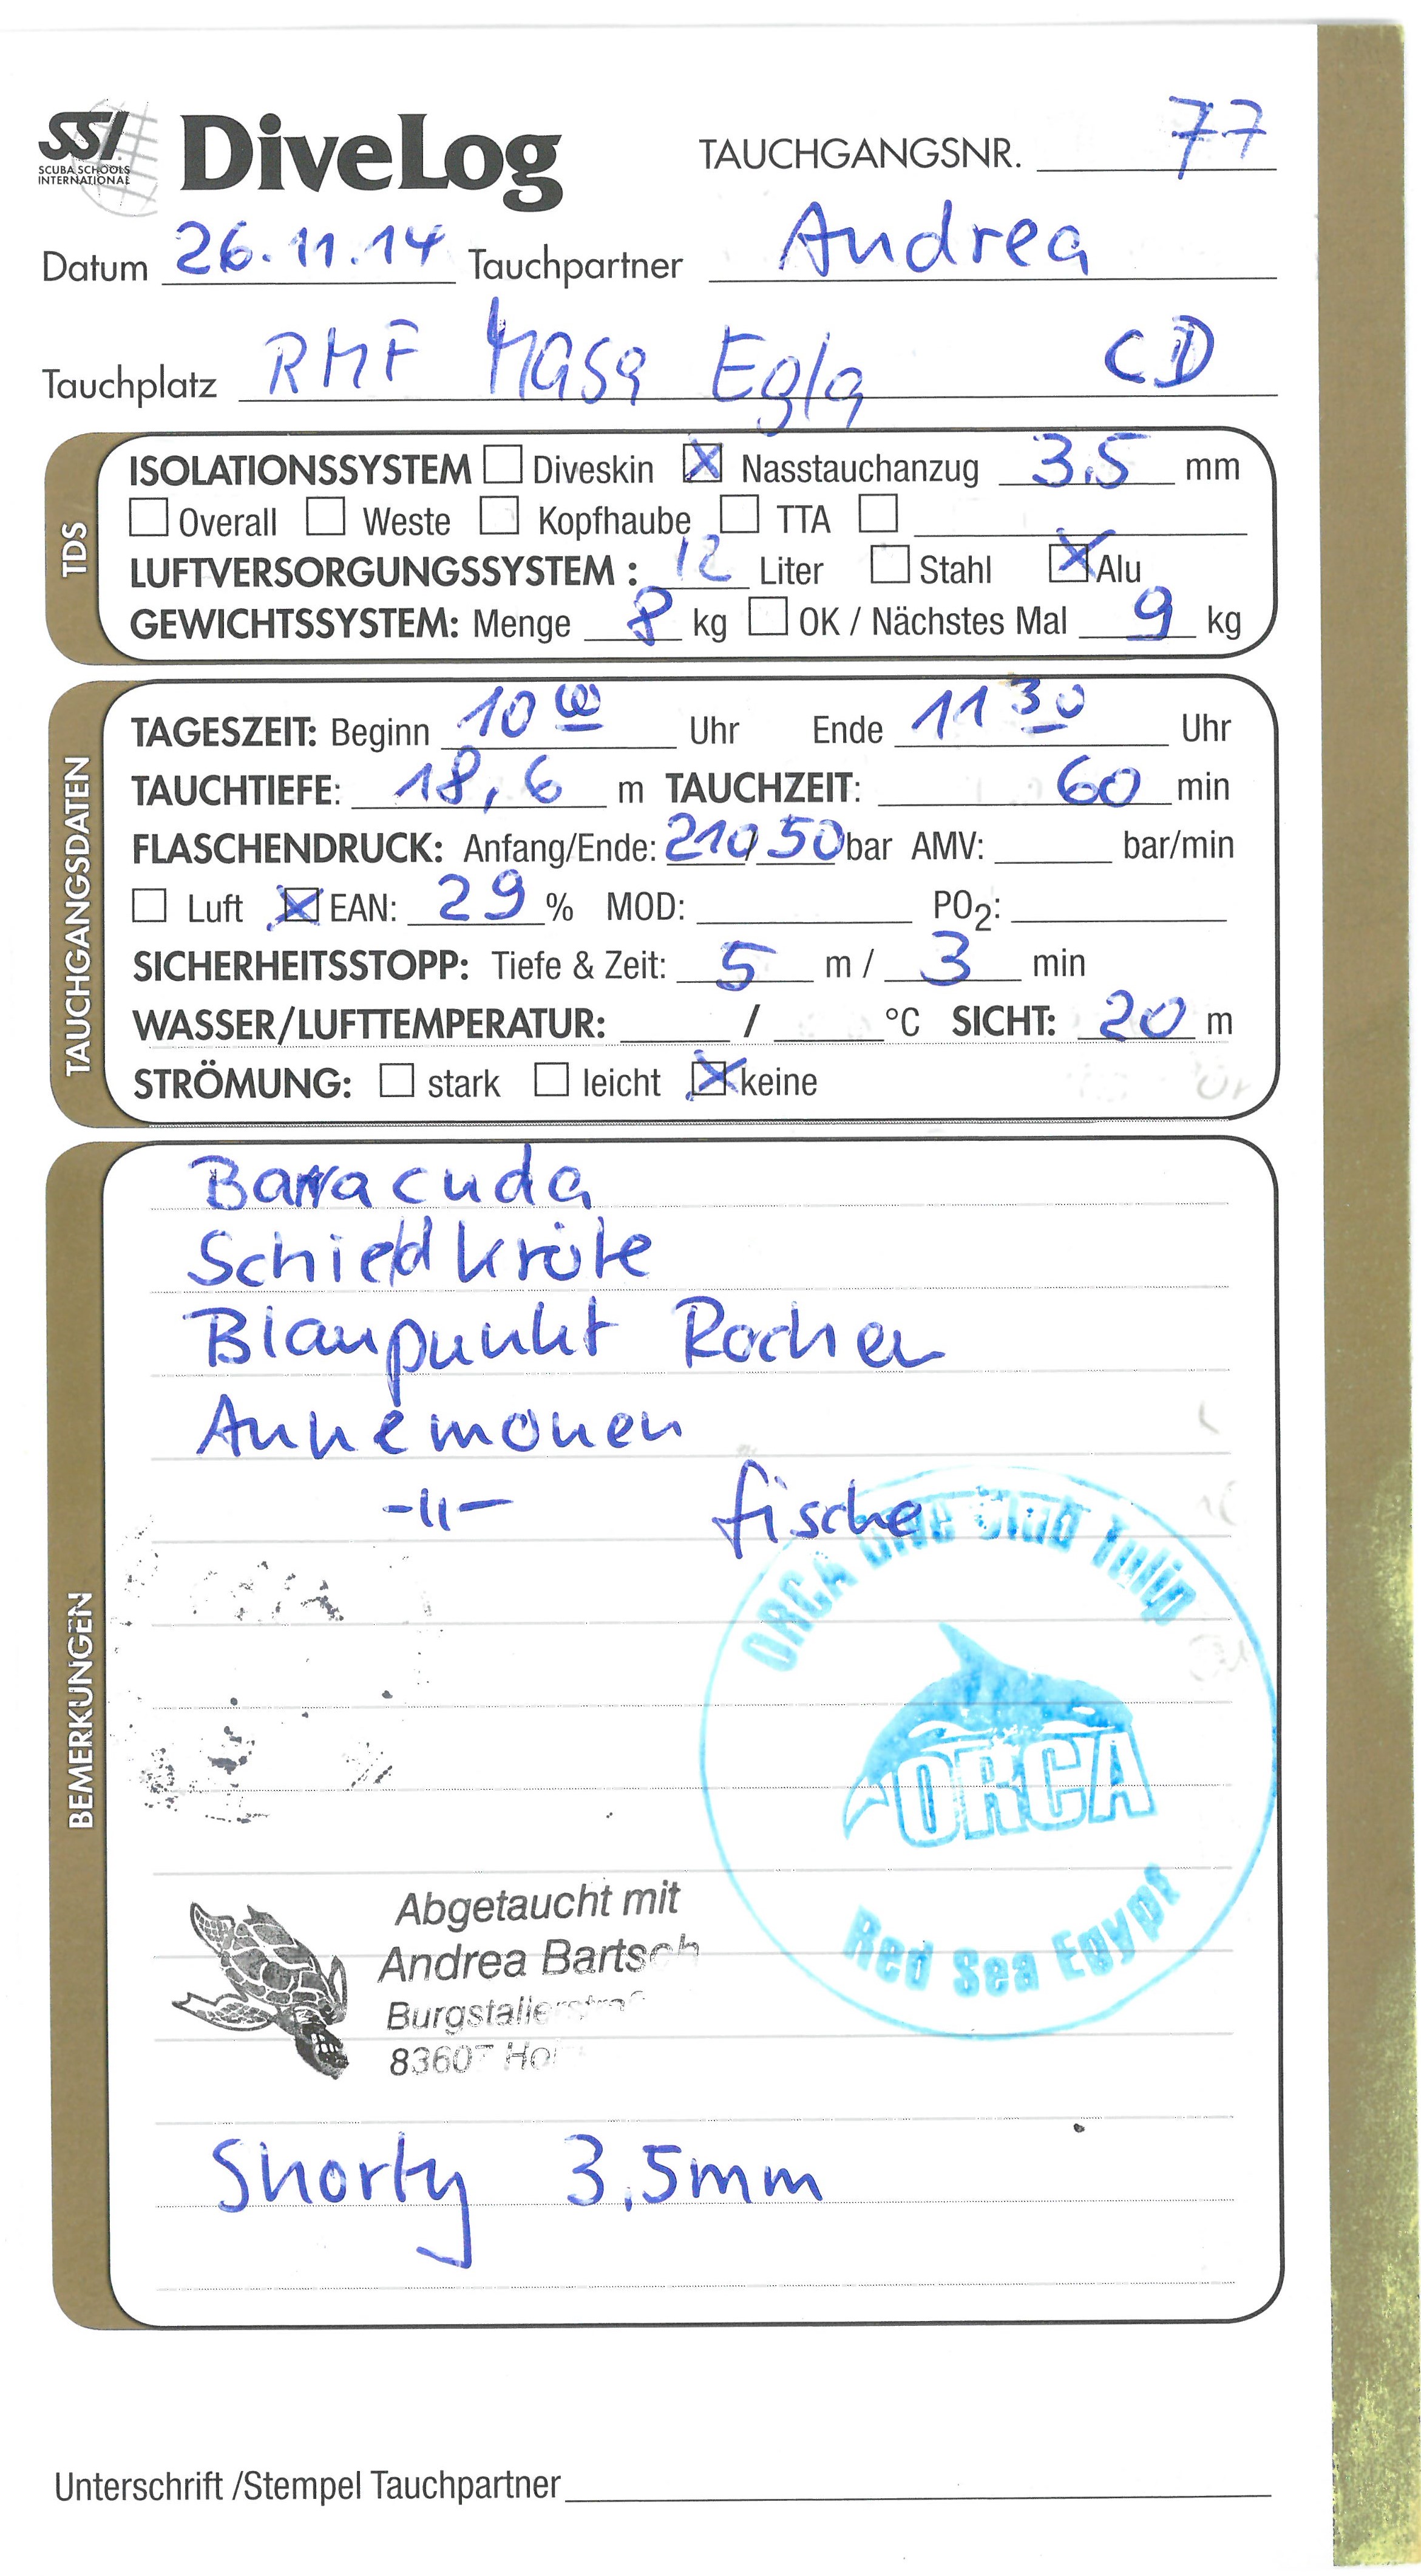 SSI
SCUBA SCHOOLS
INTERNATIONAL
DiveLog
TAUCHGANGSNR. 77
Datum 26.11.14 Tauchpartner Andrea
Tauchplatz RMF Masa Egla CD
TDS
ISOLATIONSSYSTEM Diveskin X Nasstauchanzug 3.5 mm
Overall Weste Kopfhaube TTA
LUFTVERSORGUNGSSYSTEM : 12 Liter Stahl X Alu
GEWICHTSSYSTEM: Menge 8 kg OK / Nächstes Mal 9 kg
TAUCHGANGSDATEN
TAGESZEIT: Beginn 10 00 Uhr Ende 11 30 Uhr
TAUCHTIEFE: 18,6 m TAUCHZEIT: 60 min
FLASCHENDRUCK: Anfang/Ende: 210/50 bar AMV: bar/min
Luft X EAN: 29 % MOD: PO2:
SICHERHEITSSTOPP: Tiefe & Zeit: 5 m / 3 min
WASSER/LUFTTEMPERATUR: / °C SICHT: 20 m
STRÖMUNG: stark leicht X keine
BEMERKUNGEN
Barracuda
Schieldkröte
Blaupunkt Rochen
Annemonen
-11- fische
ORCA Dive Club Tulip
ORCA
Red Sea Egypt
Abgetaucht mit
Andrea Bartsch
Shorty 3,5mm
Unterschrift /Stempel Tauchpartner